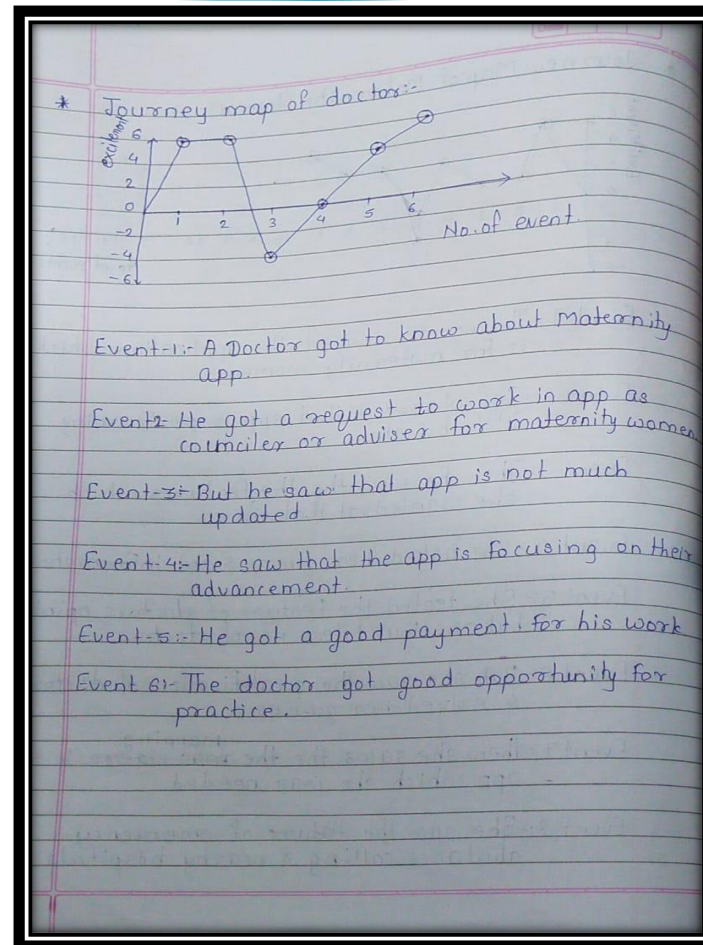 * Journey map of doctor:-
excitement
6
4
2
0
-2
-4
-6
1 2 3 4 5 6
No. of event
Event-1:- A Doctor got to know about Maternity
app.
Event2- He got a request to work in app as
counciler or adviser for maternity women
Event-3:- But he saw that app is not much
updated
Event-4:- He saw that the app is focusing on their
advancement.
Event-5:- He got a good payment for his work
Event 6:- The doctor got good opportunity for
practice.